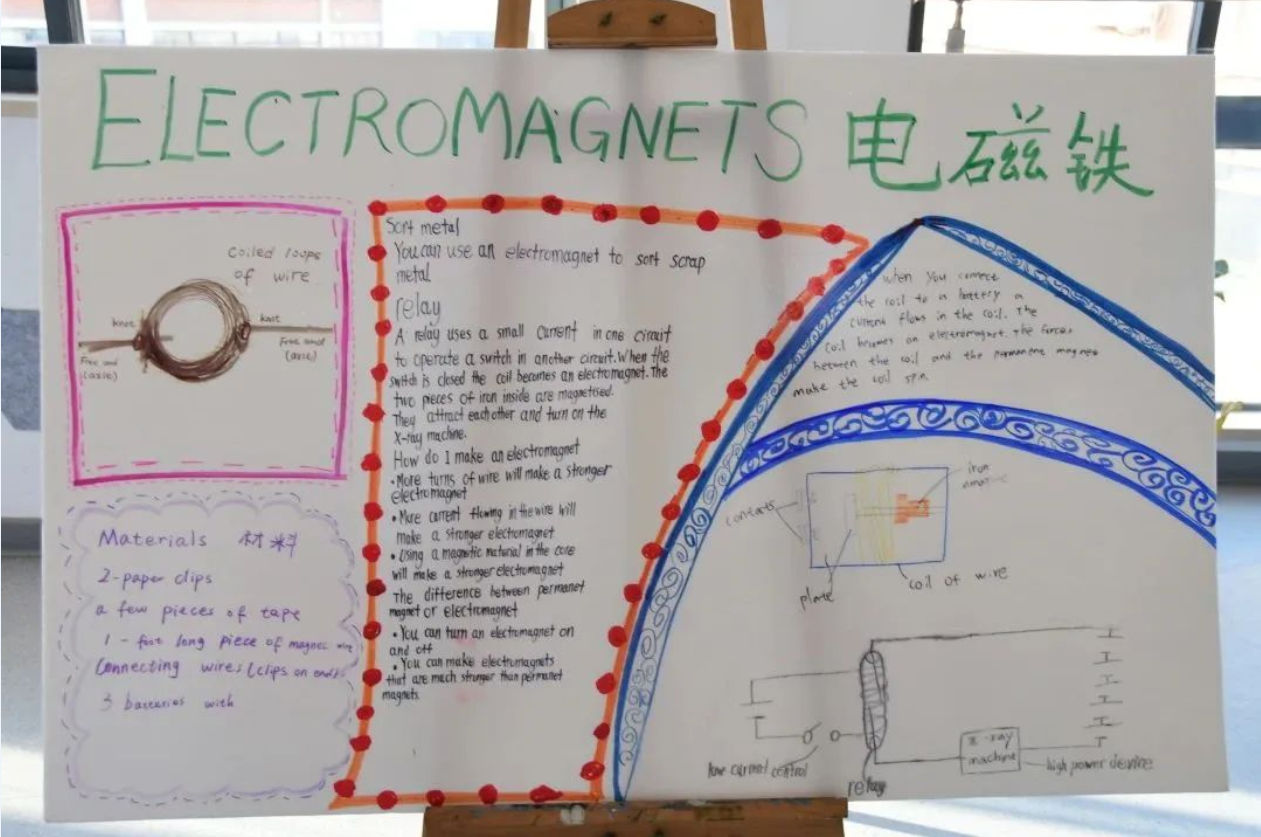 ELECTROMAGNETS 电磁铁
Coiled loops
of wire
knot
knot
Free end
(axle)
Free end
(axle)
Materials 材料
2-paper clips
a few pieces of tape
1 - foot long piece of magnet wire
Connecting wires (clips on ends)
3 batteries with
Sort metal
You can use an electromagnet to sort scrap
metal
relay
A relay uses a small current in one circuit
to operate a switch in another circuit. When the
switch is closed the coil becomes an electromagnet. The
two pieces of iron inside are magnetised.
They attract each other and turn on the
X-ray machine.
How do I make an electromagnet
• More turns of wire will make a stronger
electromagnet
• More current flowing in the wire will
make a stronger electromagnet
• Using a magnetic material in the core
will make a stronger electromagnet
The difference between permanet
magnet or electromagnet
• You can turn an electromagnet on
and off
• You can make electromagnets
that are much stronger than permanet
magnets.
when you connect
the coil to a battery a
current flows in the coil. The
coil becomes an electromagnet. the forces
between the coil and the permanent magnet
make the coil spin.
iron
contacts
plate
coil of wire
low current control
relay
X-ray
machine
high power device